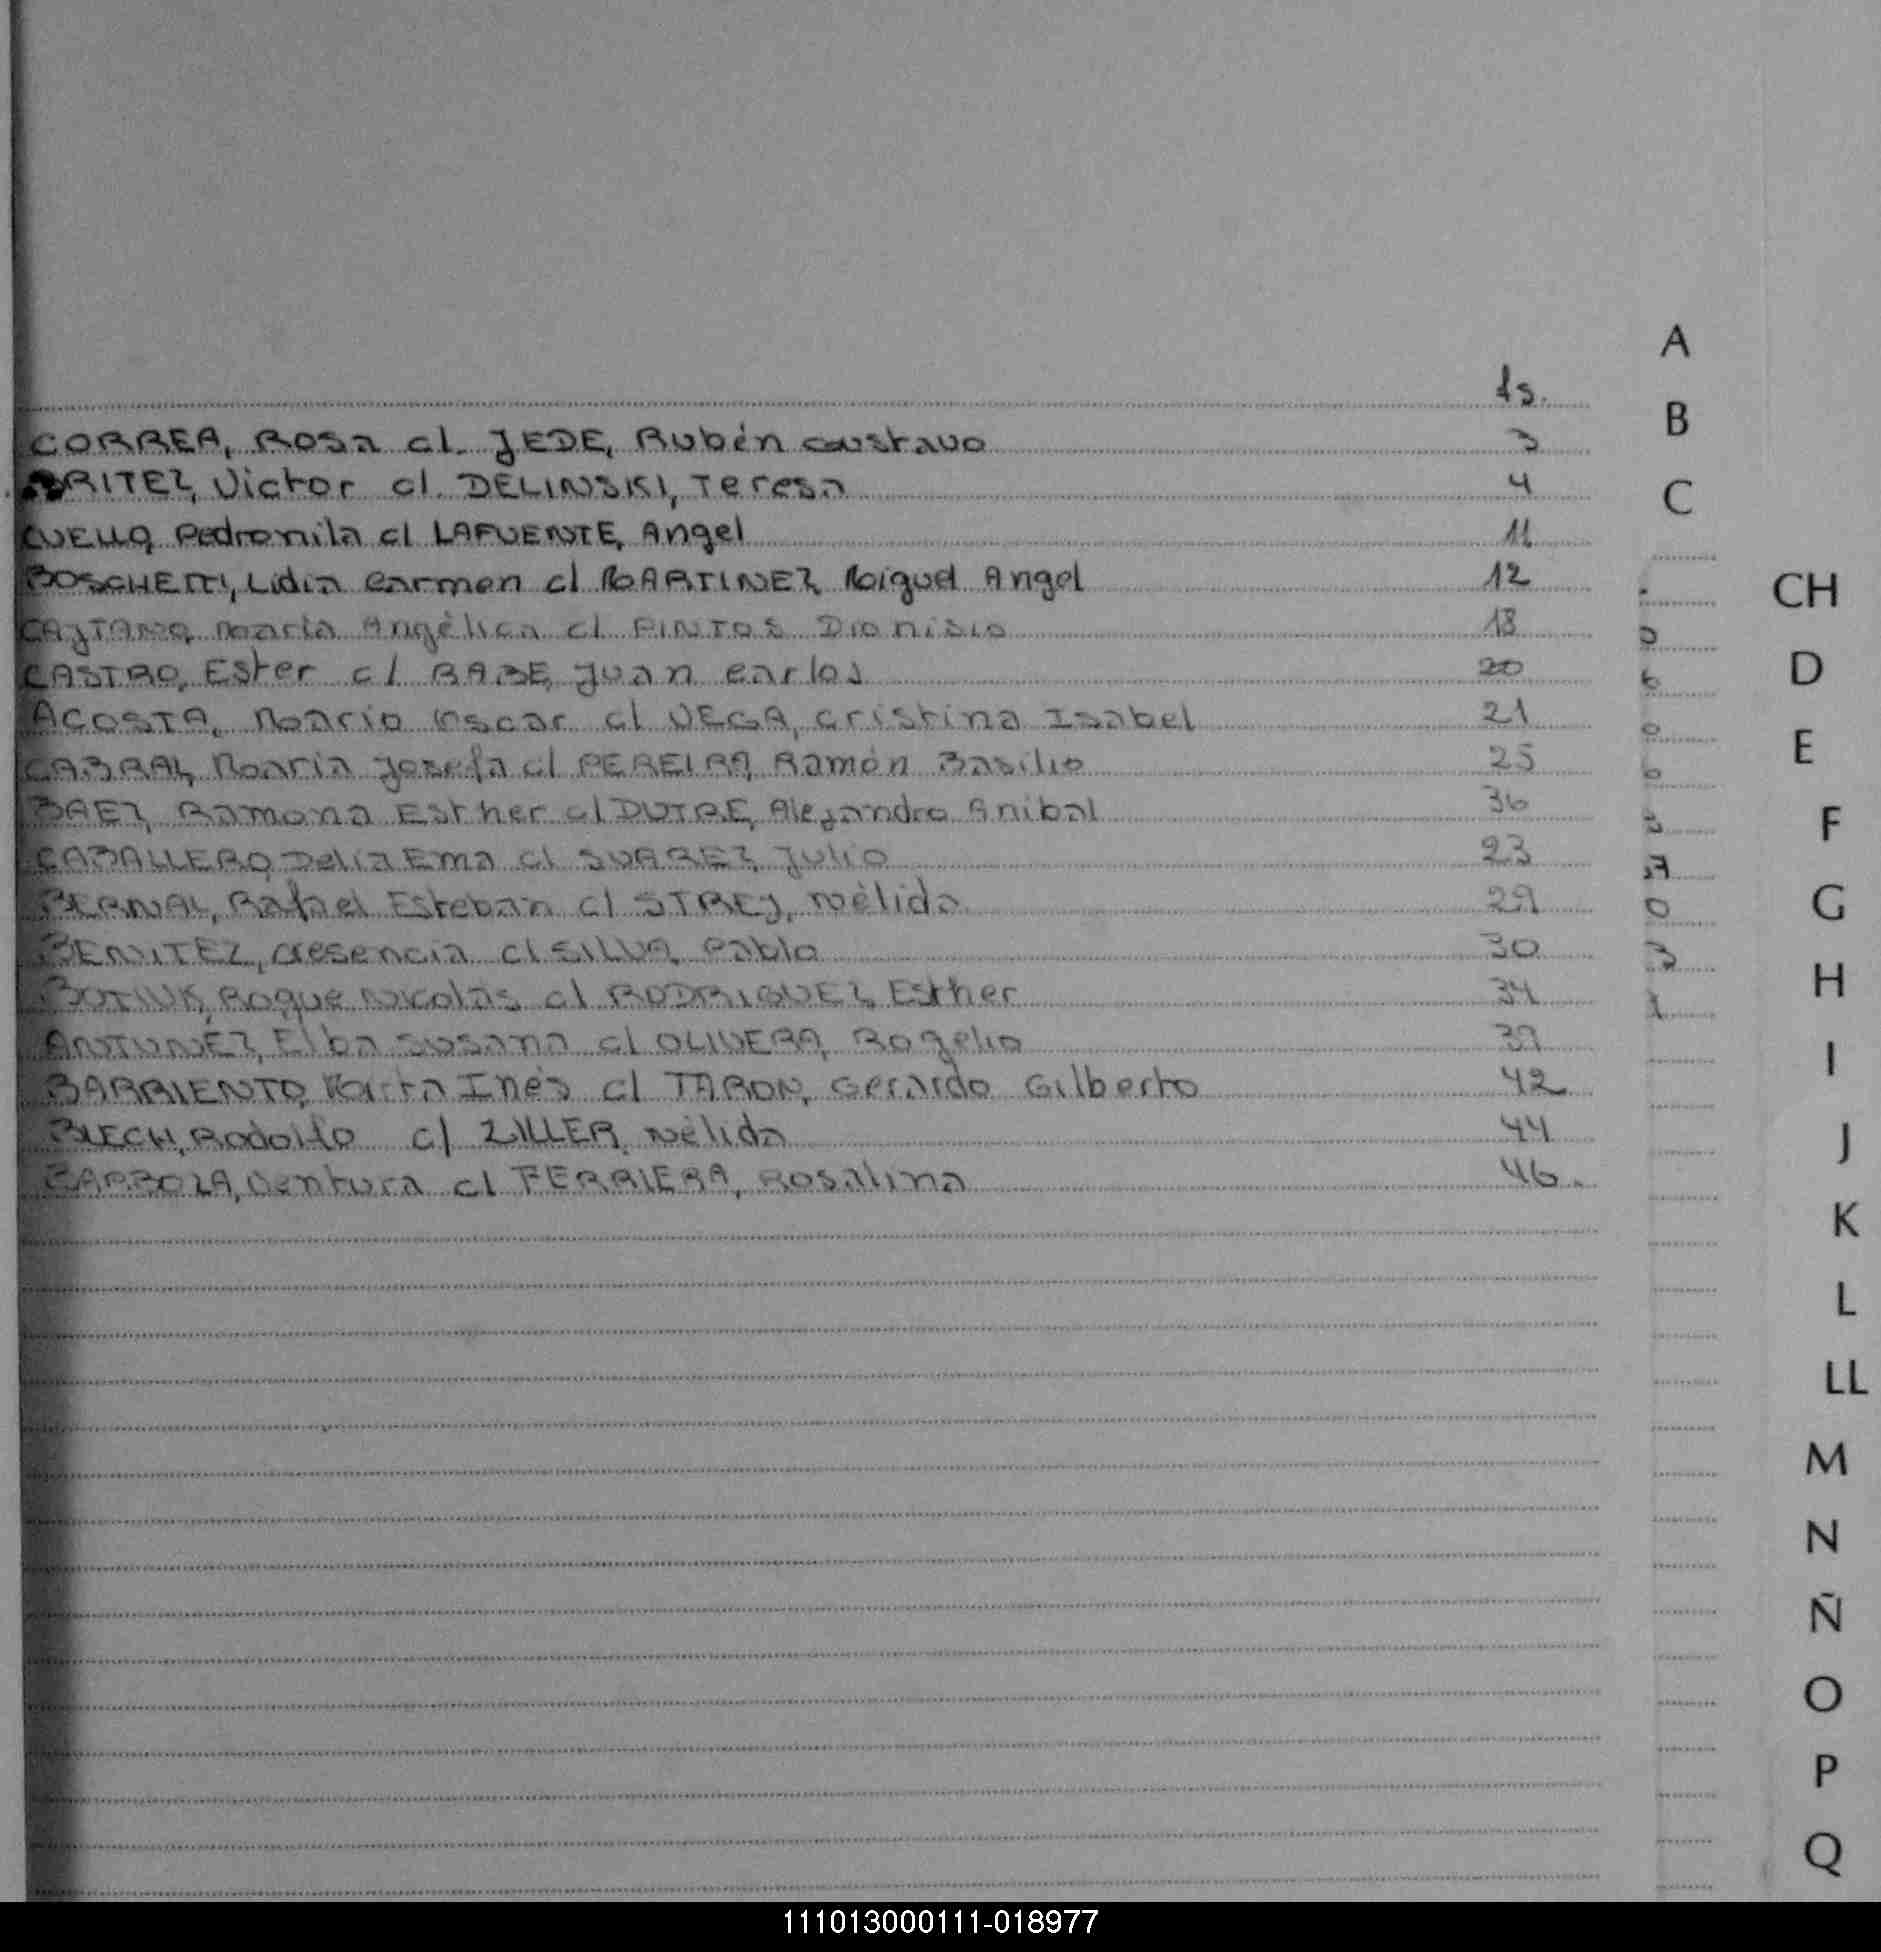 fs.
CORREA, Rosa c/. JEDE, Rubén Gustavo 3
BRITEZ, Victor c/. DELINSKI, Teresa 4
CUELLO, Pedronila c/ LAFUENTE, Angel 11
BOSCHETTI, Lidia Carmen c/ MARTINEZ, Miguel Angel 12
CAJTANO, María Angélica c/ PINTOS Dionisio 18
CASTRO, Ester c/ BABE, Juan Carlos 20
ACOSTA, Mario Oscar c/ VEGA, Cristina Isabel 21
CABRAL, María Josefa c/ PEREIRA, Ramón Basilio 25
BAEZ, Ramona Esther c/ DUTRE, Alejandro Anibal 36
CABALLERO, Delia Ema c/ SUAREZ, Julio 23
BERNAL, Rafael Esteban c/ STREJ, Nélida 29
BENITEZ, Cresencia c/ SILVA, Pablo 30
Roque Nicolás c/ RODRIGUEZ, Esther 34
ANTUNEZ, Elba Susana c/ OLIVERA, Rogelio 39
BARRIENTO, Marta Inés c/ TARON, Gerardo Gilberto 42
BLECH, Rodolfo c/ ZILLER, Nélida 44
BARBOZA, Ventura c/ FERRIERA, Rosalina 46.
A
B
C
CH
D
E
F
G
H
I
J
K
L
LL
M
N
Ñ
O
P
Q
111013000111-018977